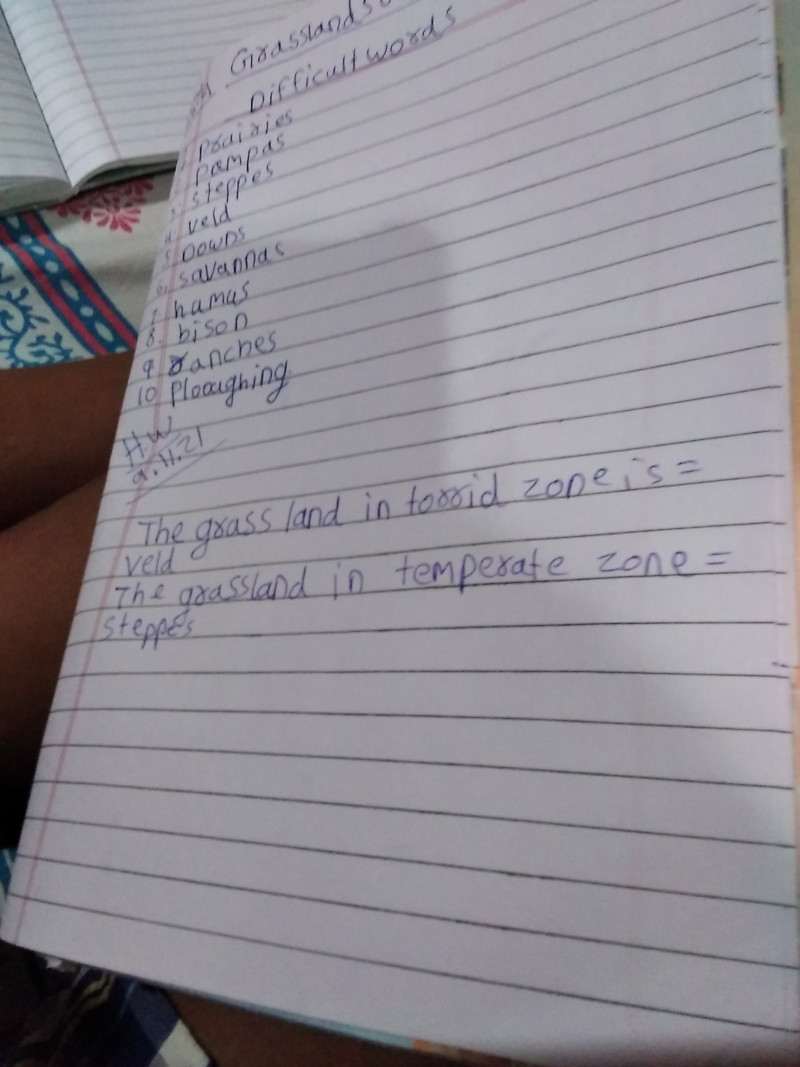 Grasslands
Difficult words
1. prairies
2. pampas
3. steppes
4. veld
5. Downs
6. savannas
7. hamus
8. bison
9 ranches
10 Plooughing
H.W
9.11.21
The grass land in torrid zone is =
veld
The grassland in temperate zone =
steppes